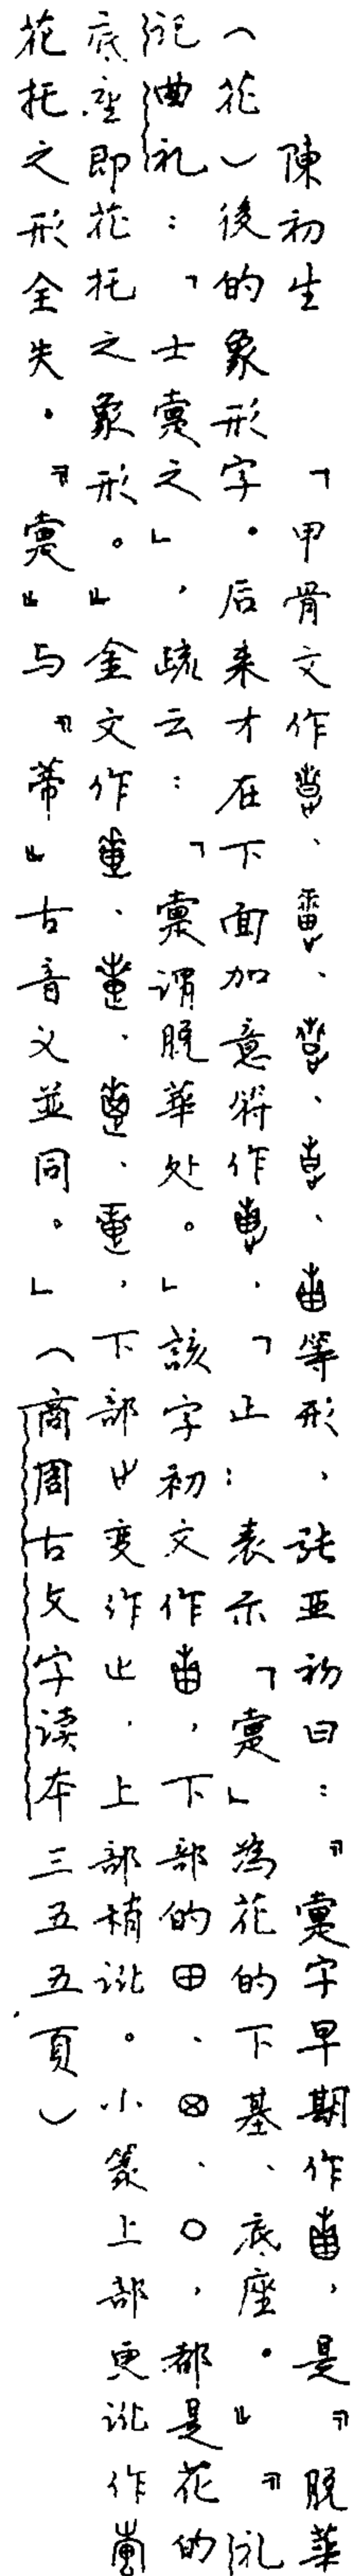 陳初生　「甲骨文作、、、、等形，张亚初曰：『疐字早期作，是『脱華
（花）後的象形字。后来才在下面加意符作，「止：表示「疐」為花的下基、底座。』『礼
記曲礼：「士疐之」，疏云：「疐谓脱華处。」該字初文作，下部的田、⊗、○，都是花的
底座即花托之象形。』金文作、、、，下部变作止，上部稍讹。小篆上部更讹作
花托之形全失。『疐』与『蒂』古音义並同。」（商周古文字读本三五五頁）